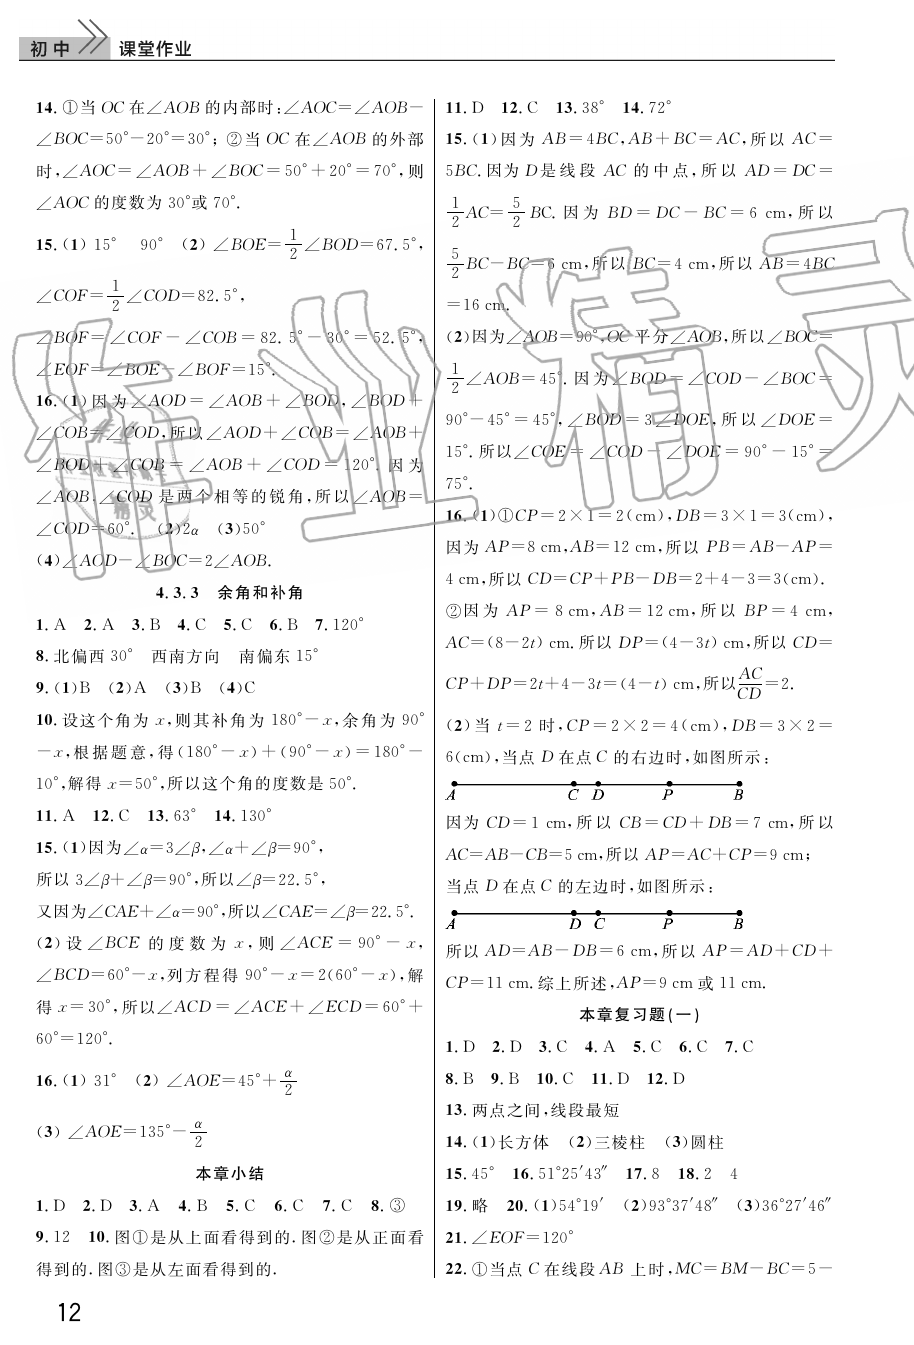 初中 课堂作业
14. ①当 OC 在∠AOB 的内部时:∠AOC=∠AOB-
∠BOC=50°-20°=30°; ②当 OC 在∠AOB 的外部
时,∠AOC=∠AOB+∠BOC=50°+20°=70°,则
∠AOC 的度数为 30°或 70°.
15. (1) 15° 90° (2) ∠BOE=1/2∠BOD=67.5°,
∠COF=1/2∠COD=82.5°,
∠BOF=∠COF-∠COB=82.5°-30°=52.5°,
∠EOF=∠BOE-∠BOF=15°.
16. (1) 因为∠AOD=∠AOB+∠BOD,∠BOD+
∠COB=∠COD,所以∠AOD+∠COB=∠AOB+
∠BOD+∠COB=∠AOB+∠COD=120°. 因为
∠AOB、∠COD 是两个相等的锐角,所以∠AOB=
∠COD=60°. (2)2α (3)50°
(4)∠AOD-∠BOC=2∠AOB.
4.3.3 余角和补角
1. A 2. A 3. B 4. C 5. C 6. B 7. 120°
8. 北偏西 30° 西南方向 南偏东 15°
9. (1)B (2)A (3)B (4)C
10. 设这个角为 x,则其补角为 180°-x,余角为 90°
-x,根据题意,得(180°-x)+(90°-x)=180°-
10°,解得 x=50°,所以这个角的度数是 50°.
11. A 12. C 13. 63° 14. 130°
15. (1)因为∠α=3∠β,∠α+∠β=90°,
所以 3∠β+∠β=90°,所以∠β=22.5°,
又因为∠CAE+∠α=90°,所以∠CAE=∠β=22.5°.
(2) 设 ∠BCE 的度数为 x,则 ∠ACE=90°-x,
∠BCD=60°-x,列方程得 90°-x=2(60°-x),解
得 x=30°,所以∠ACD=∠ACE+∠ECD=60°+
60°=120°.
16. (1) 31° (2) ∠AOE=45°+α/2
(3) ∠AOE=135°-α/2
本章小结
1. D 2. D 3. A 4. B 5. C 6. C 7. C 8. ③
9. 12 10. 图①是从上面看得到的. 图②是从正面看
得到的. 图③是从左面看得到的.
11. D 12. C 13. 38° 14. 72°
15. (1)因为 AB=4BC,AB+BC=AC,所以 AC=
5BC. 因为 D是线段 AC 的中点,所以 AD=DC=
1/2AC=5/2BC. 因为 BD=DC-BC=6 cm,所以
5/2BC-BC=6 cm,所以 BC=4 cm,所以 AB=4BC
=16 cm.
(2)因为∠AOB=90°,OC 平分∠AOB,所以∠BOC=
1/2∠AOB=45°. 因为∠BOD=∠COD-∠BOC=
90°-45°=45°,∠BOD=3∠DOE,所以∠DOE=
15°. 所以∠COE=∠COD-∠DOE=90°-15°=
75°.
16. (1)①CP=2×1=2(cm),DB=3×1=3(cm),
因为 AP=8 cm,AB=12 cm,所以 PB=AB-AP=
4 cm,所以 CD=CP+PB-DB=2+4-3=3(cm).
②因为 AP=8 cm,AB=12 cm,所以 BP=4 cm,
AC=(8-2t) cm. 所以 DP=(4-3t) cm,所以 CD=
CP+DP=2t+4-3t=(4-t) cm,所以AC/CD=2.
(2)当 t=2 时,CP=2×2=4(cm),DB=3×2=
6(cm),当点 D 在点 C 的右边时,如图所示:
A C D P B
因为 CD=1 cm,所以 CB=CD+DB=7 cm,所以
AC=AB-CB=5 cm,所以 AP=AC+CP=9 cm;
当点 D 在点 C 的左边时,如图所示:
A D C P B
所以 AD=AB-DB=6 cm,所以 AP=AD+CD+
CP=11 cm. 综上所述,AP=9 cm 或 11 cm.
本章复习题(一)
1. D 2. D 3. C 4. A 5. C 6. C 7. C
8. B 9. B 10. C 11. D 12. D
13. 两点之间,线段最短
14. (1)长方体 (2)三棱柱 (3)圆柱
15. 45° 16. 51°25′43″ 17. 8 18. 2 4
19. 略 20. (1)54°19′ (2)93°37′48″ (3)36°27′46″
21. ∠EOF=120°
22. ①当点 C 在线段 AB 上时,MC=BM-BC=5-
12
作业精灵